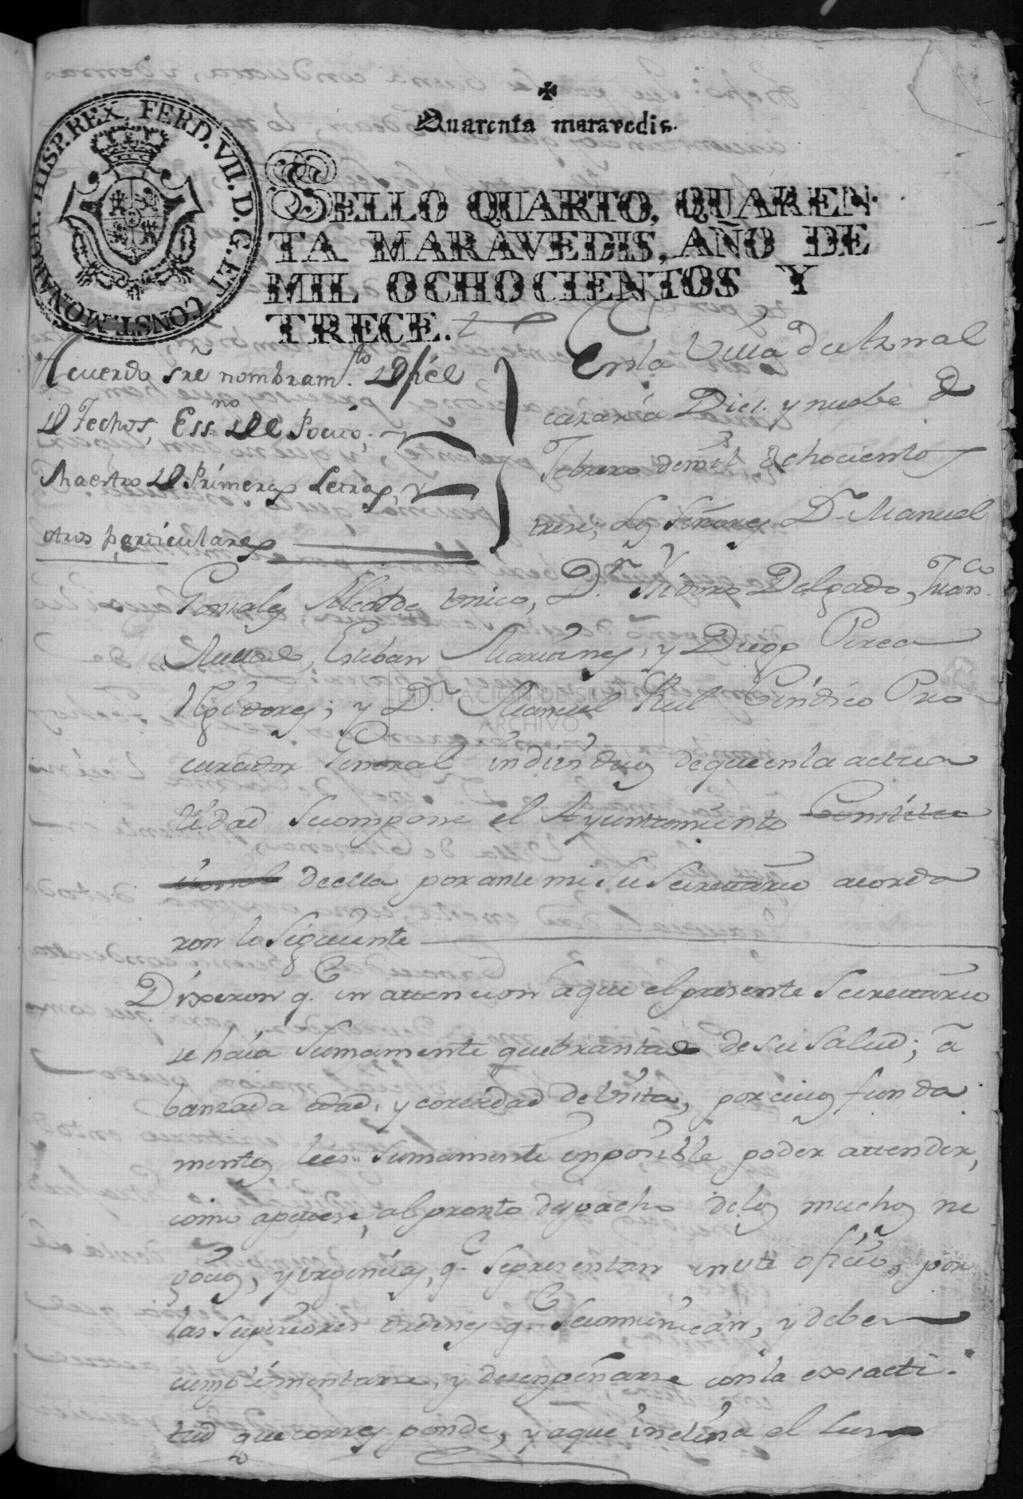 ✠
Quarenta maravedis.
HISP. REX FERD. VII. D. G. ET CONST. MONARCH.
SELLO QUARTO, QUAREN-
TA MARAVEDIS, AÑO DE
MIL OCHOCIENTOS Y
TRECE.
Acuerdo sre nombramto de fiel
de fechos, Essno del Pocito,
Maestro de Primeras Letras, y
otros particulares
En la Villa de Arnal
caxaria Diez y nuebe de
Febrero de mil Ochocientos
trese; los Señores Dn Manuel
Gonsales Alcalde unico, Dn Ysidoro Delgado, Franco
Esteban Martines, y Diego Perea
Regidores; y Dn Manuel Rul Cindico Pro
curador General individuos de quien la actua
lidad se compone el Ayuntamiento Constitu
cional de ella por ante mi su Secretario acorda
ron lo siguiente
Dixeron q. en attencion a que el presente Secretario
se halla sumamente quebrantado de su salud; a
banzada edad, y cortedad de vista, por cuios funda
mentos le es sumamente enposible poder attender,
como apetese, al pronto despacho de los muchos ne
gocios, y urgencias, q. se presentan en este oficio, por
las superiores ordenes q. se comunican, y deben
cumplimentarse, y desenpeñarse con la exsacti
tud que corresponde, y aque inclina el
DIPUTACION DE SEVILLA
ARCHIVO